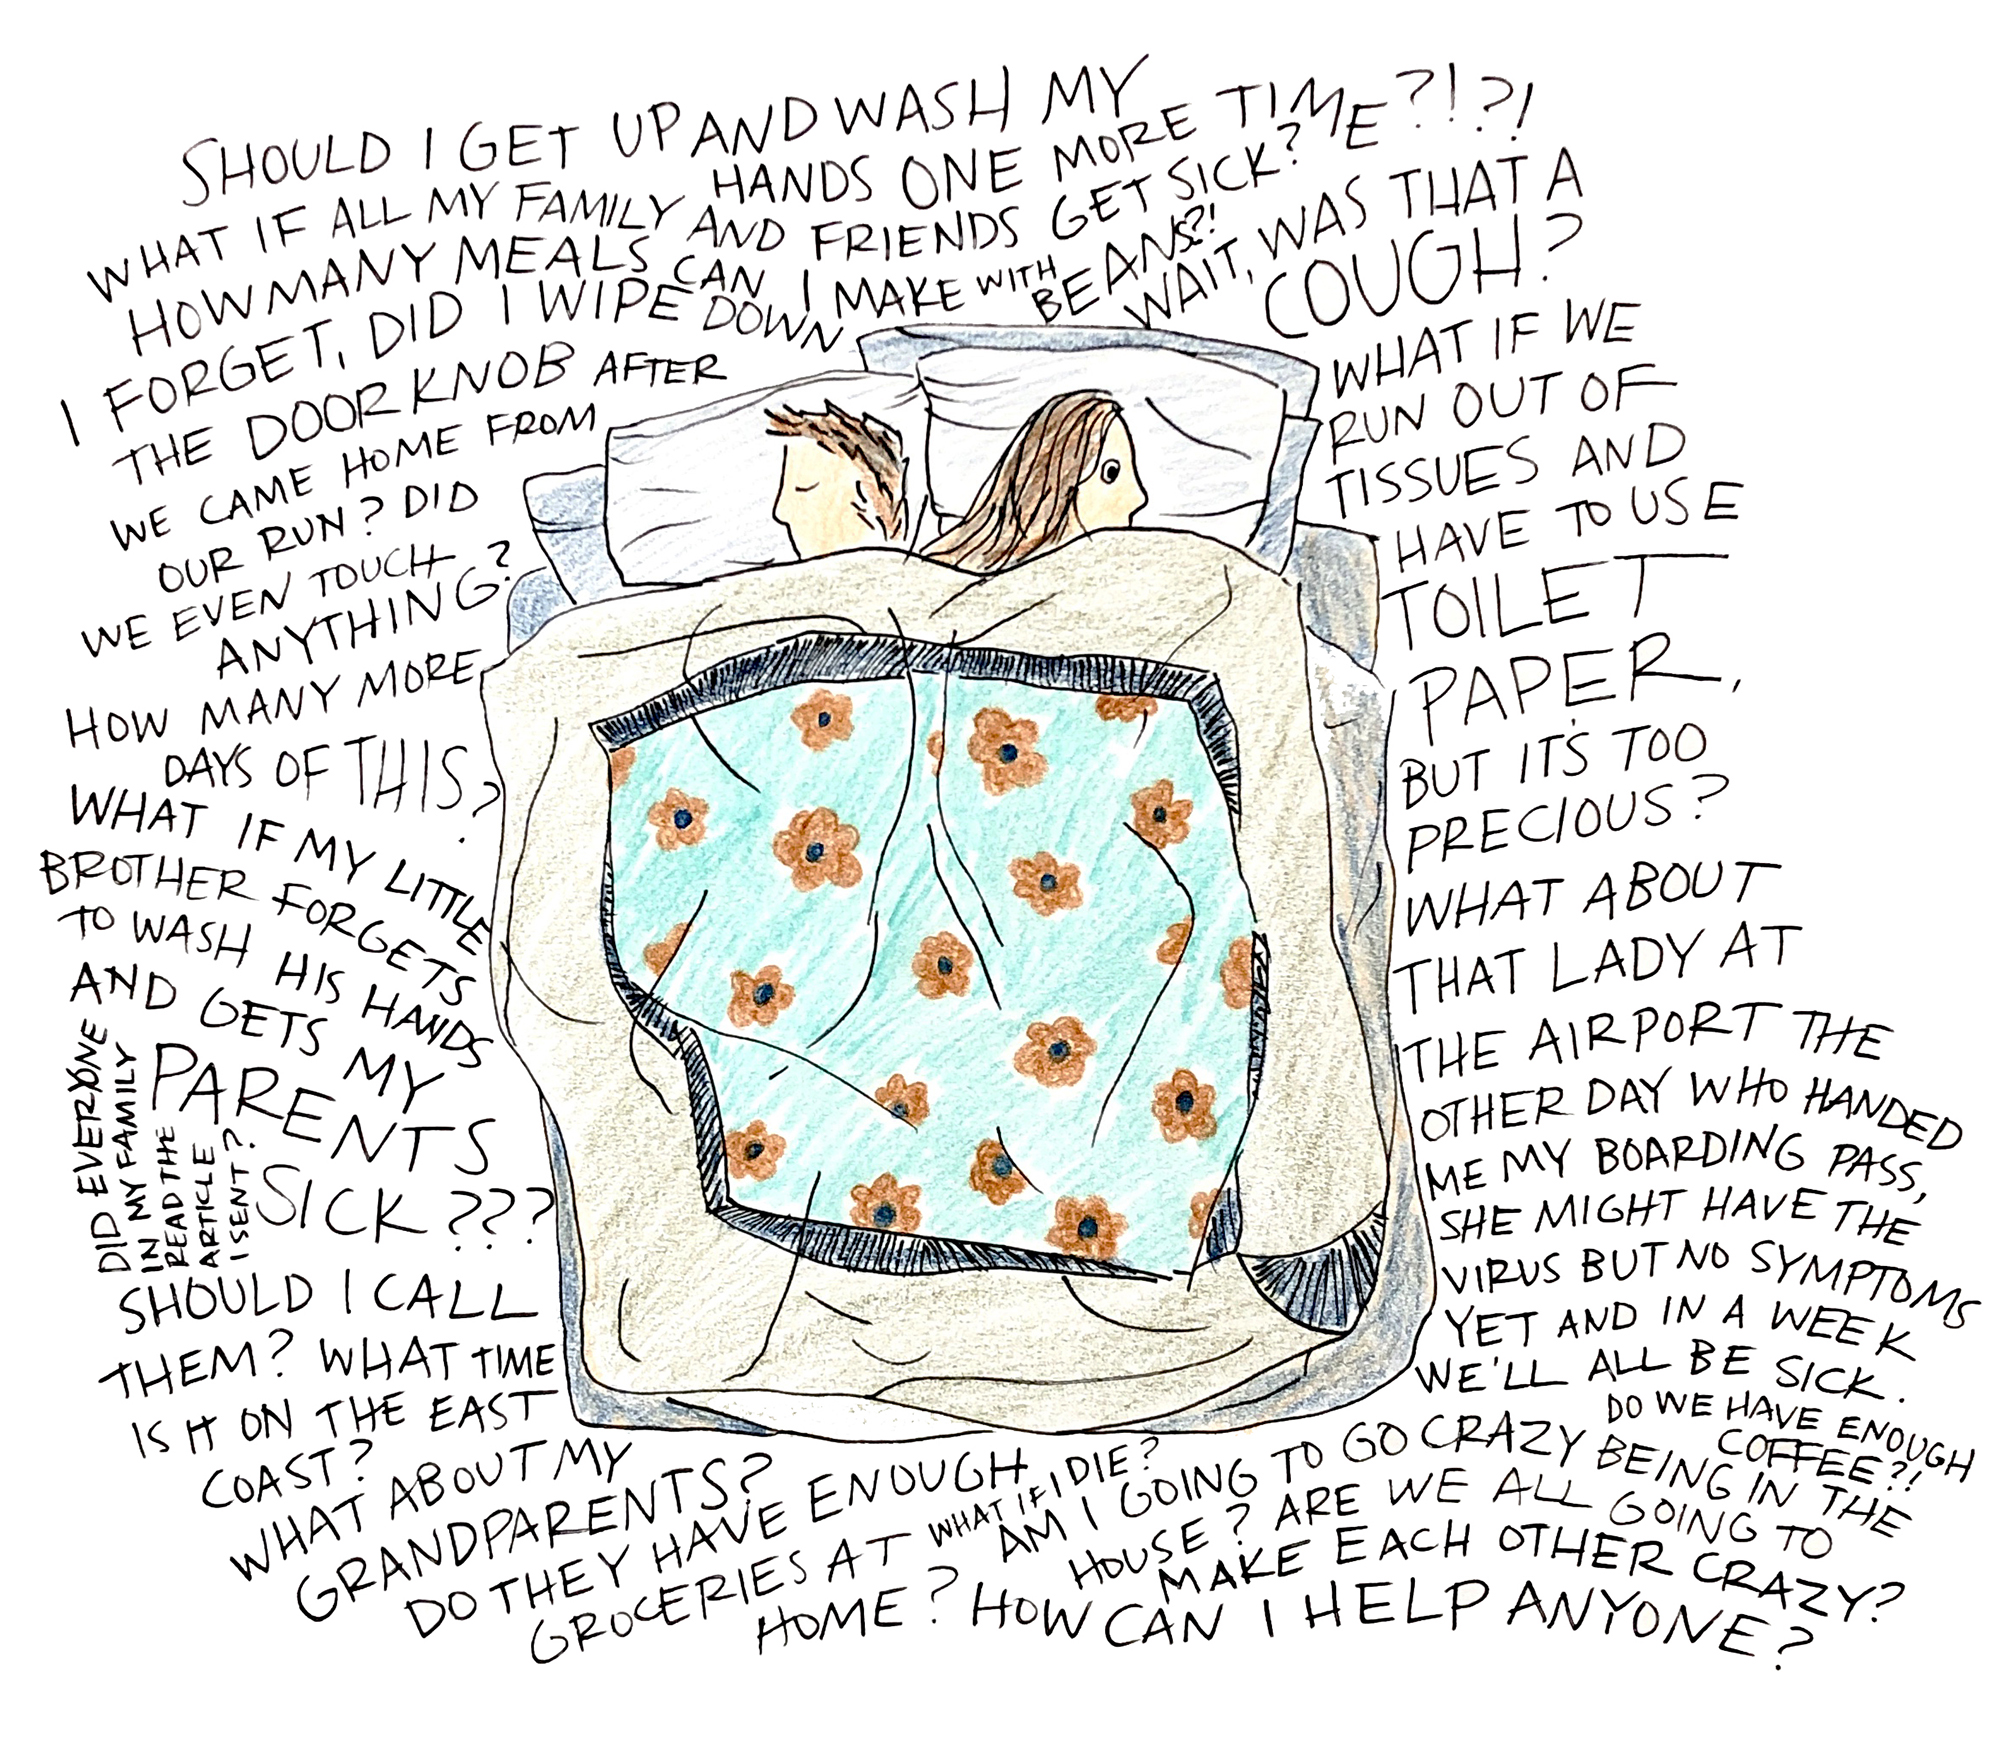 SHOULD I GET UP AND WASH MY
HANDS ONE MORE TIME?!?!
WHAT IF ALL MY FAMILY AND FRIENDS GET SICK?
HOW MANY MEALS CAN I MAKE WITH
BEANS?!
WAIT, WAS THAT A
COUGH?
I FORGET, DID I WIPE DOWN
THE DOOR KNOB AFTER
WE CAME HOME FROM
OUR RUN? DID
WE EVEN TOUCH
ANYTHING?
HOW MANY MORE
DAYS OF THIS?
WHAT IF MY LITTLE
BROTHER FORGETS
TO WASH HIS HANDS
AND GETS MY
PARENTS
SICK???
DID EVERYONE
IN MY FAMILY
READ THE
ARTICLE
I SENT?
SHOULD I CALL
THEM? WHAT TIME
IS IT ON THE EAST
COAST?
WHAT ABOUT MY
GRANDPARENTS?
DO THEY HAVE ENOUGH
GROCERIES AT
HOME?
WHAT IF I DIE?
WHAT IF WE
RUN OUT OF
TISSUES AND
HAVE TO USE
TOILET
PAPER,
BUT IT'S TOO
PRECIOUS?
WHAT ABOUT
THAT LADY AT
THE AIRPORT THE
OTHER DAY WHO HANDED
ME MY BOARDING PASS,
SHE MIGHT HAVE THE
VIRUS BUT NO SYMPTOMS
YET AND IN A WEEK
WE'LL ALL BE SICK.
DO WE HAVE ENOUGH
COFFEE?!
AM I GOING TO GO CRAZY BEING IN THE
HOUSE? ARE WE ALL GOING TO
MAKE EACH OTHER CRAZY?
HOW CAN I HELP ANYONE?